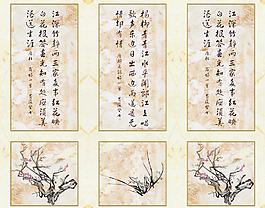 江深竹静两三家多事红花映
白花报答春光知有处应须美
酒送生涯
杨柳青青江水平闻郎江上唱
歌声东边日出西边雨道是无
情却有情
江深竹静两三家多事红花映
白花报答春光知有处应须美
酒送生涯